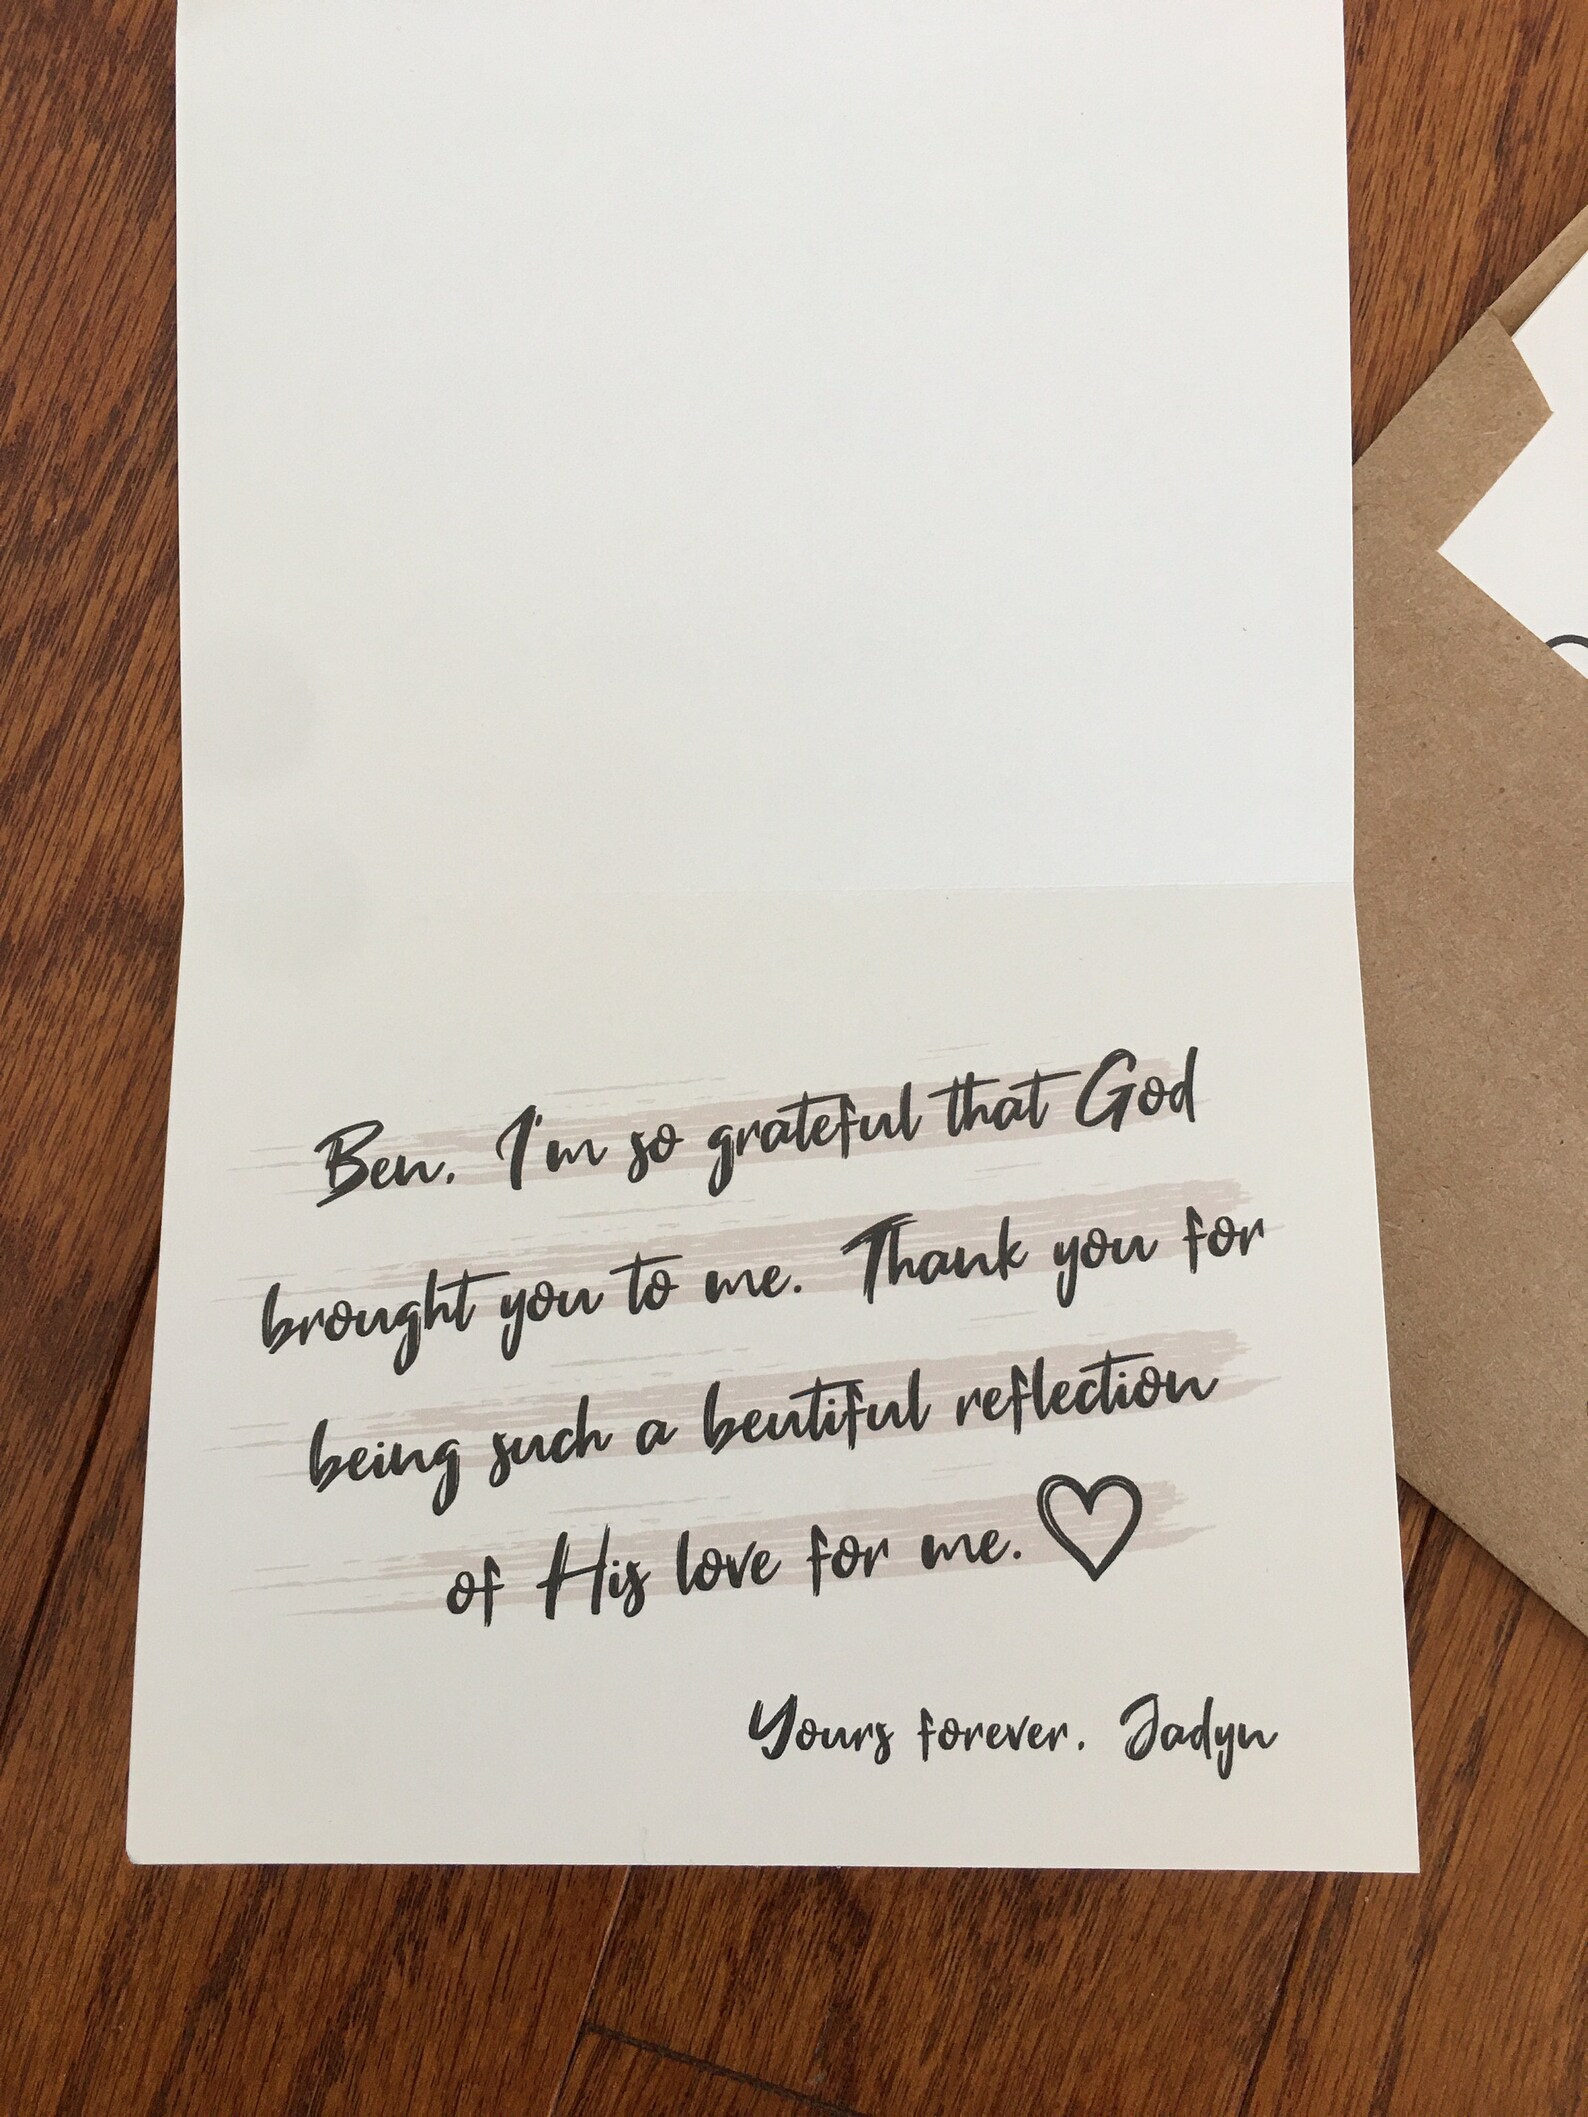 Ben. I'm so grateful that God
brought you to me. Thank you for
being such a beutiful reflection
of His love for me.
Yours forever. Jadyn